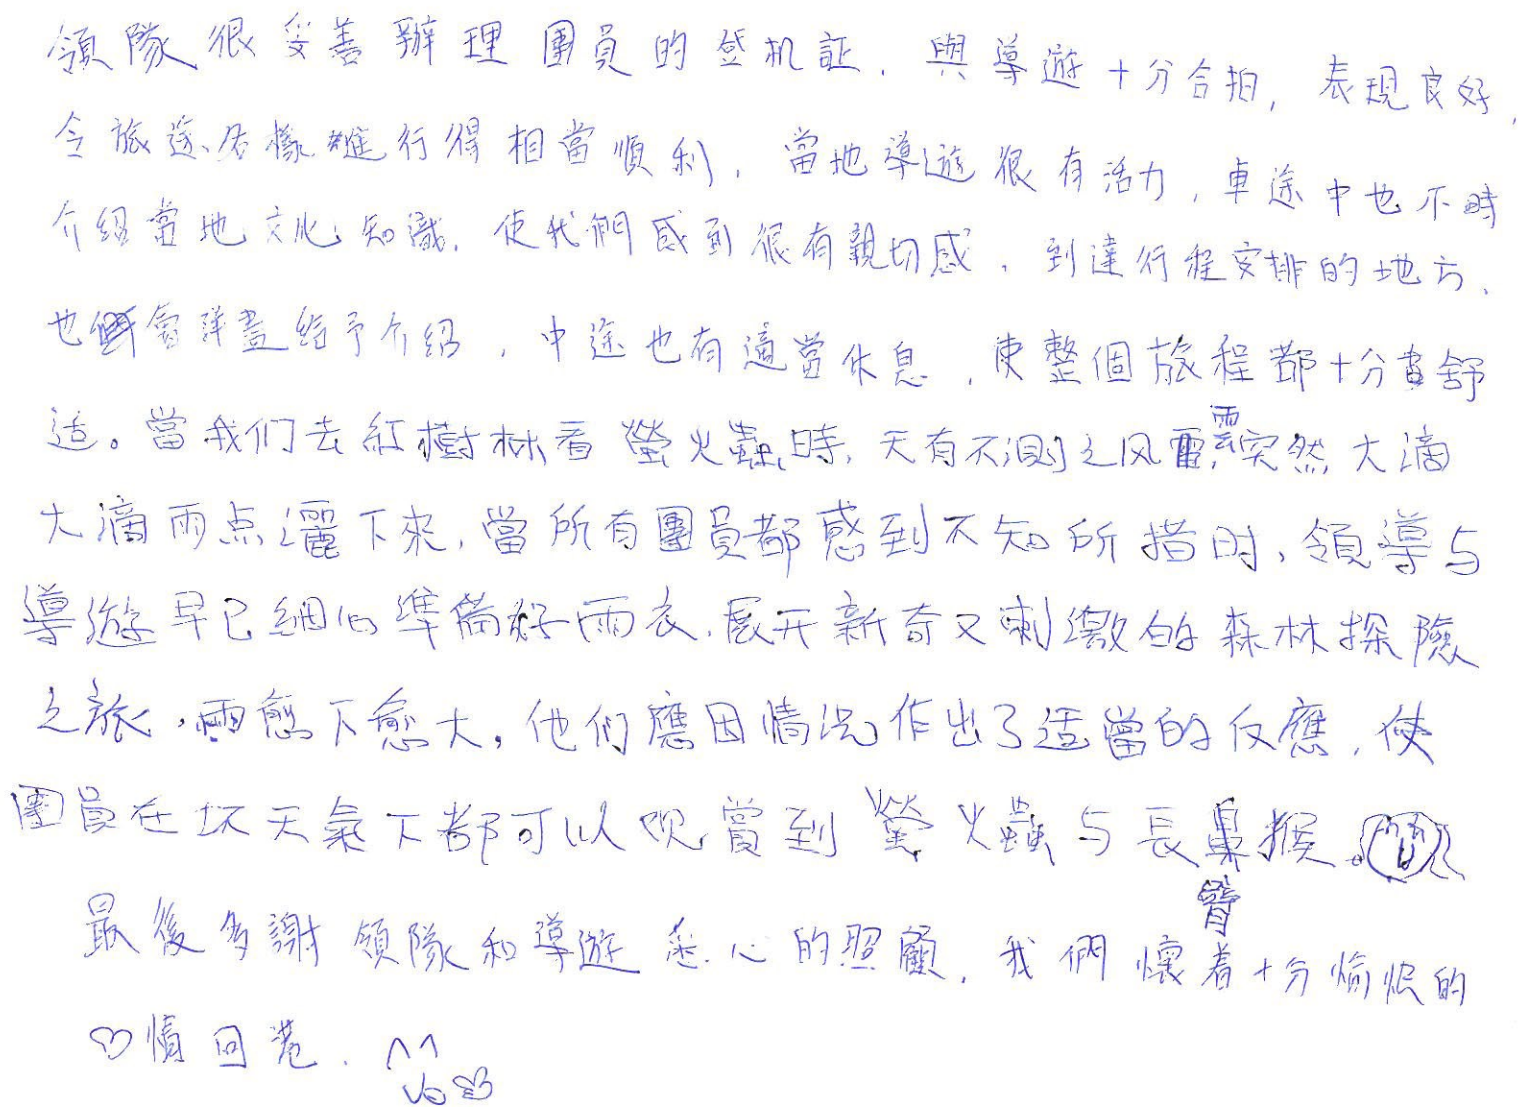 領隊很妥善辦理團員的登机証，與導遊十分合拍，表現良好，
令旅途各樣進行得相當順利，當地導遊很有活力，車途中也不時
介紹當地文化知識，使我們感到很有親切感，到達行程安排的地方，
也會詳盡給予介紹，中途也有適當休息，使整個旅程都十分舒
适。當我们去紅樹林看螢火蟲時，天有不測之风雲，突然大滴
大滴雨点灑下來，當所有團員都感到不知所措时，領導与
導遊早已細心準備好雨衣，展开新奇又刺激的森林探險
之旅，雨愈下愈大，他们應因情况作出了适當的反應，使
團員在坏天氣下都可以观賞到螢火蟲与長鼻猴。
最後多謝領隊和導遊悉心的照顧，我們懷着十分愉快的
♡情回港. ^^